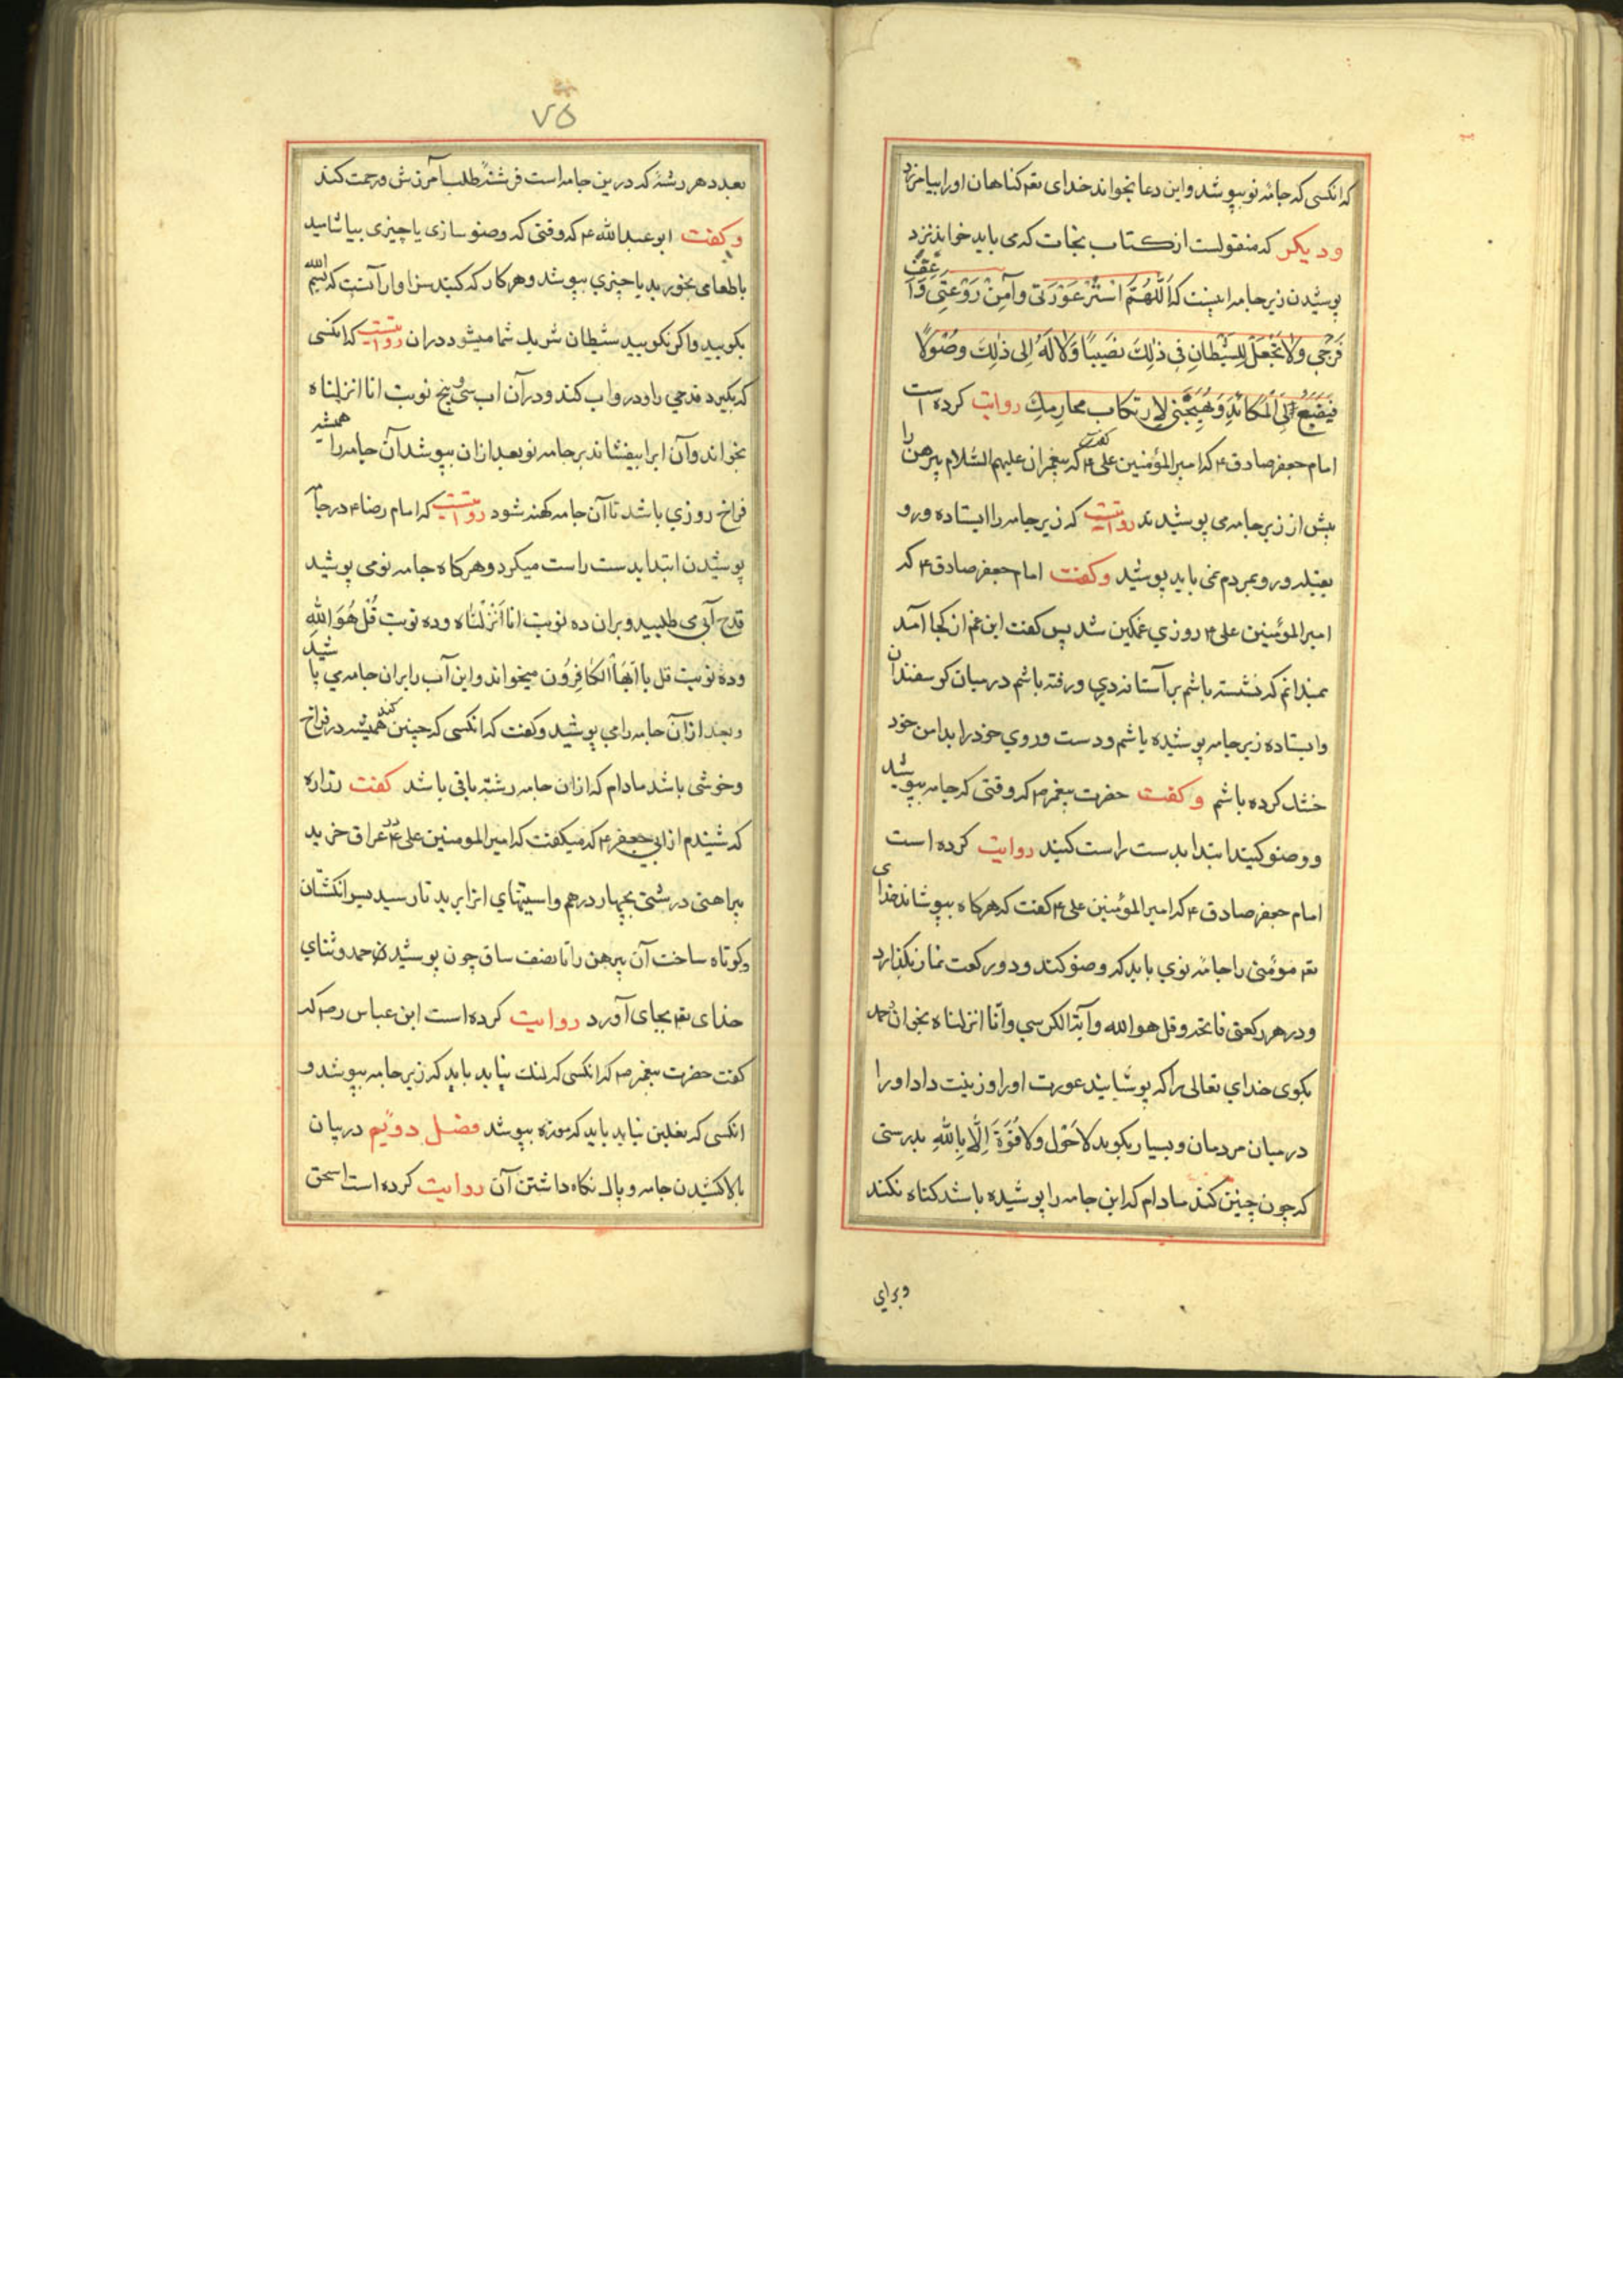 که انکسی که جامهٔ نو بپوشد و این دعا بخواند خدای تعم کناهان او را بیامرزد
و دیکر که منقولست از کتاب نجات که می باید خواند نزد
پوشیدن زیر جامه اینست که اَللّهُمَّ اسْتُرْ عَوْرَتی وآمِنْ رَوْعَتِی وَاَعِفَّ
فَرْجی وَلا تَجْعَلْ لِلشَّیْطانِ فی ذلِكَ نَصیبًا وَلا لَهُ اِلی ذلِكَ وصُولًا
فَیَضَعَ اِلَیَّ الْمَکائِدَ وَیُهَیِّجَنی لِارتکابِ محارِمِكَ روایت کرده است
امام جعفر صادق ۴ که امیر المؤمنین علی ۴ کفت که پیغمبران علیهم السّلام پیرهن را
پیش از زیر جامه می پوشیدند روایتست که زیر جامه را ایستاده و رو
بقبله و رو بمردم نمی باید پوشید وکفت امام جعفر صادق ۴ که
امیر المؤمنین علی ۴ روزی غمکین شد پس کفت این غم از کجا آمد
نمیدانم که نشسته باشم بر آستانه دری و رفته باشم در میان کوسفندان
و ایستاده زیر جامه پوشیده باشم و دست و روی خود را بدامن خود
خشك کرده باشم وکفت حضرت پیغمبر ص که وقتی که جامه بپوشید
و وضو کنید ابتدا بدست راست کنید روایت کرده است
امام جعفر صادق ۴ که امیر المؤمنین علی ۴ کفت که هرکاه بپوشاند خدای
تعم مؤمنی را جامهٔ نوی باید که وضو کند و دو رکعت نماز بکذارد
و در هر رکعتی فاتحه و قل هو الله و آیة الکرسی و انّا انزلناه بخواند و حمد
بکوی خدای تعالی را که پوشانید عورت او را و زینت داد او را
در میان مردمان و بسیار بکوید لا حَوْلَ ولا قُوَّةَ اِلّا بِاللهِ بدرستی
که چون چنین کند مادام که این جامه را پوشیده باشد کناه نکند
وبرای
۷۵
بعدد هر رشتهٔ که درین جامه است فرشتهٔ طلب آمرزش و رحمت کند
وکفت ابو عبد الله ۴ که وقتی که وضو سازی یا چیزی بیاشامید
یا طعامی بخورید یا چیزی بپوشد و هر کار که کنید سزاوار آنست که بسم الله
بکویید و اکر نکویید شیطان شریك شما میشود در ان روایتست که انکسی
که بکیرد قدحی را و در و اب کند و در آن اب سی و پنج نوبت انا انزلناه
بخواند و آن ابرا بیفشاند بر جامه نو بعد از ان بپوشد آن جامه را همیشه
فراخ روزی باشد تا آن جامه کهنه شود روایتست که امام رضا ۴ در جامه
پوشیدن ابتدا بدست راست میکرد و هرکاه جامه نو می پوشید
قدح آبی می طلبید و بران ده نوبت انا اَنْزَلْناه و ده نوبت قُلْ هُوَ اللهِ
و ده نوبت قل یا اَیُّهَا الکٰافِرُون میخواند و این آب را بران جامه می پاشید
و بعد از آن جامه را می پوشید و کفت که انکسی که چنین کند همیشه در فراخ
و خوشی باشد مادام که از ان جامه رشتهٔ باقی باشد کفت زراره
که شنیدم از ابی جعفر ۴ که میکفت که امیر المومنین علی ۴ در عراق خرید
پیراهنی درشتی بچهار درهم و استینهای انرا برید تا رسید بسر انکشتان
و کوتاه ساخت آن پیرهن را تا نصف ساق چون پوشید ان حمد و ثنای
خدای تعم بجای آورد روایت کرده است ابن عباس رض که
کفت حضرت پیغمبر ص که انکسی که لنك نیابد باید که زیر جامه بپوشد و
انکسی که نعلین نیابد باید که موزه بپوشد فصل دویّم در بیان
بالا کشیدن جامه و پاك نکاه داشتن آن روایت کرده است اسحق